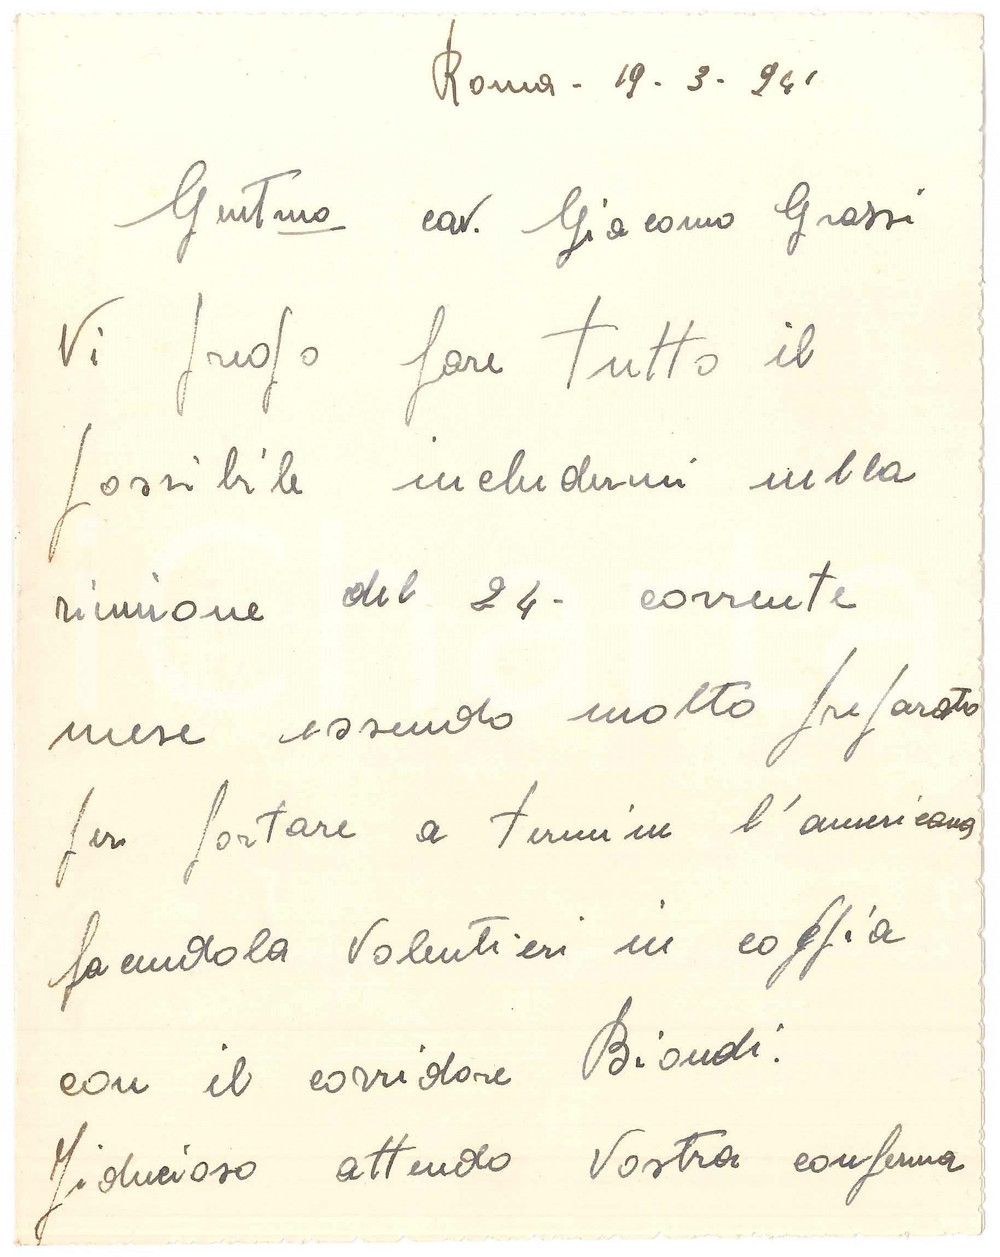 Roma - 19 - 3 - 941
Gentmo cav. Giacomo Grassi
Vi prego fare tutto il
possibile includermi nella
riunione del 24 - corrente
mese essendo molto preparato
per portare a termine l'americana
facendola volentieri in coppia
con il corridore Biondi.
Fiducioso attendo Vostra conferma
iCharta